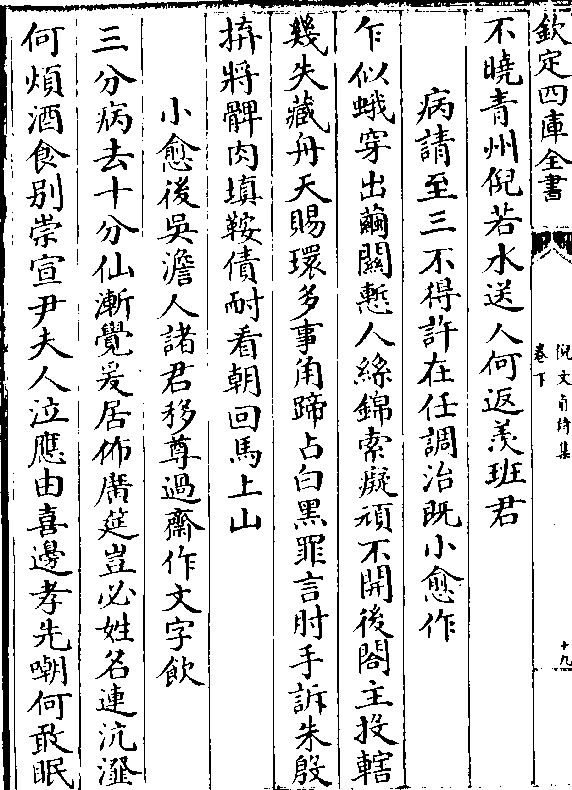 欽定四庫全書
倪文貞詩集
卷下
十九
不曉青州倪若水送人何返羨班君
病請至三不得許在任調治既小愈作
乍似蛾穿出繭關慙人絲錦索癡頑不開後閤主投轄
幾失藏舟天賜環多事角蹄占白黑罪言肘手訴朱殷
拚將髀肉填鞍債耐看朝回馬上山
小愈後吳澹人諸君移尊過齋作文字飲
三分病去十分仙漸覺爰居怖廣筵豈必姓名連沆瀣
何煩酒食別崇宣尹夫人泣應由喜邊孝先嘲何敢眠